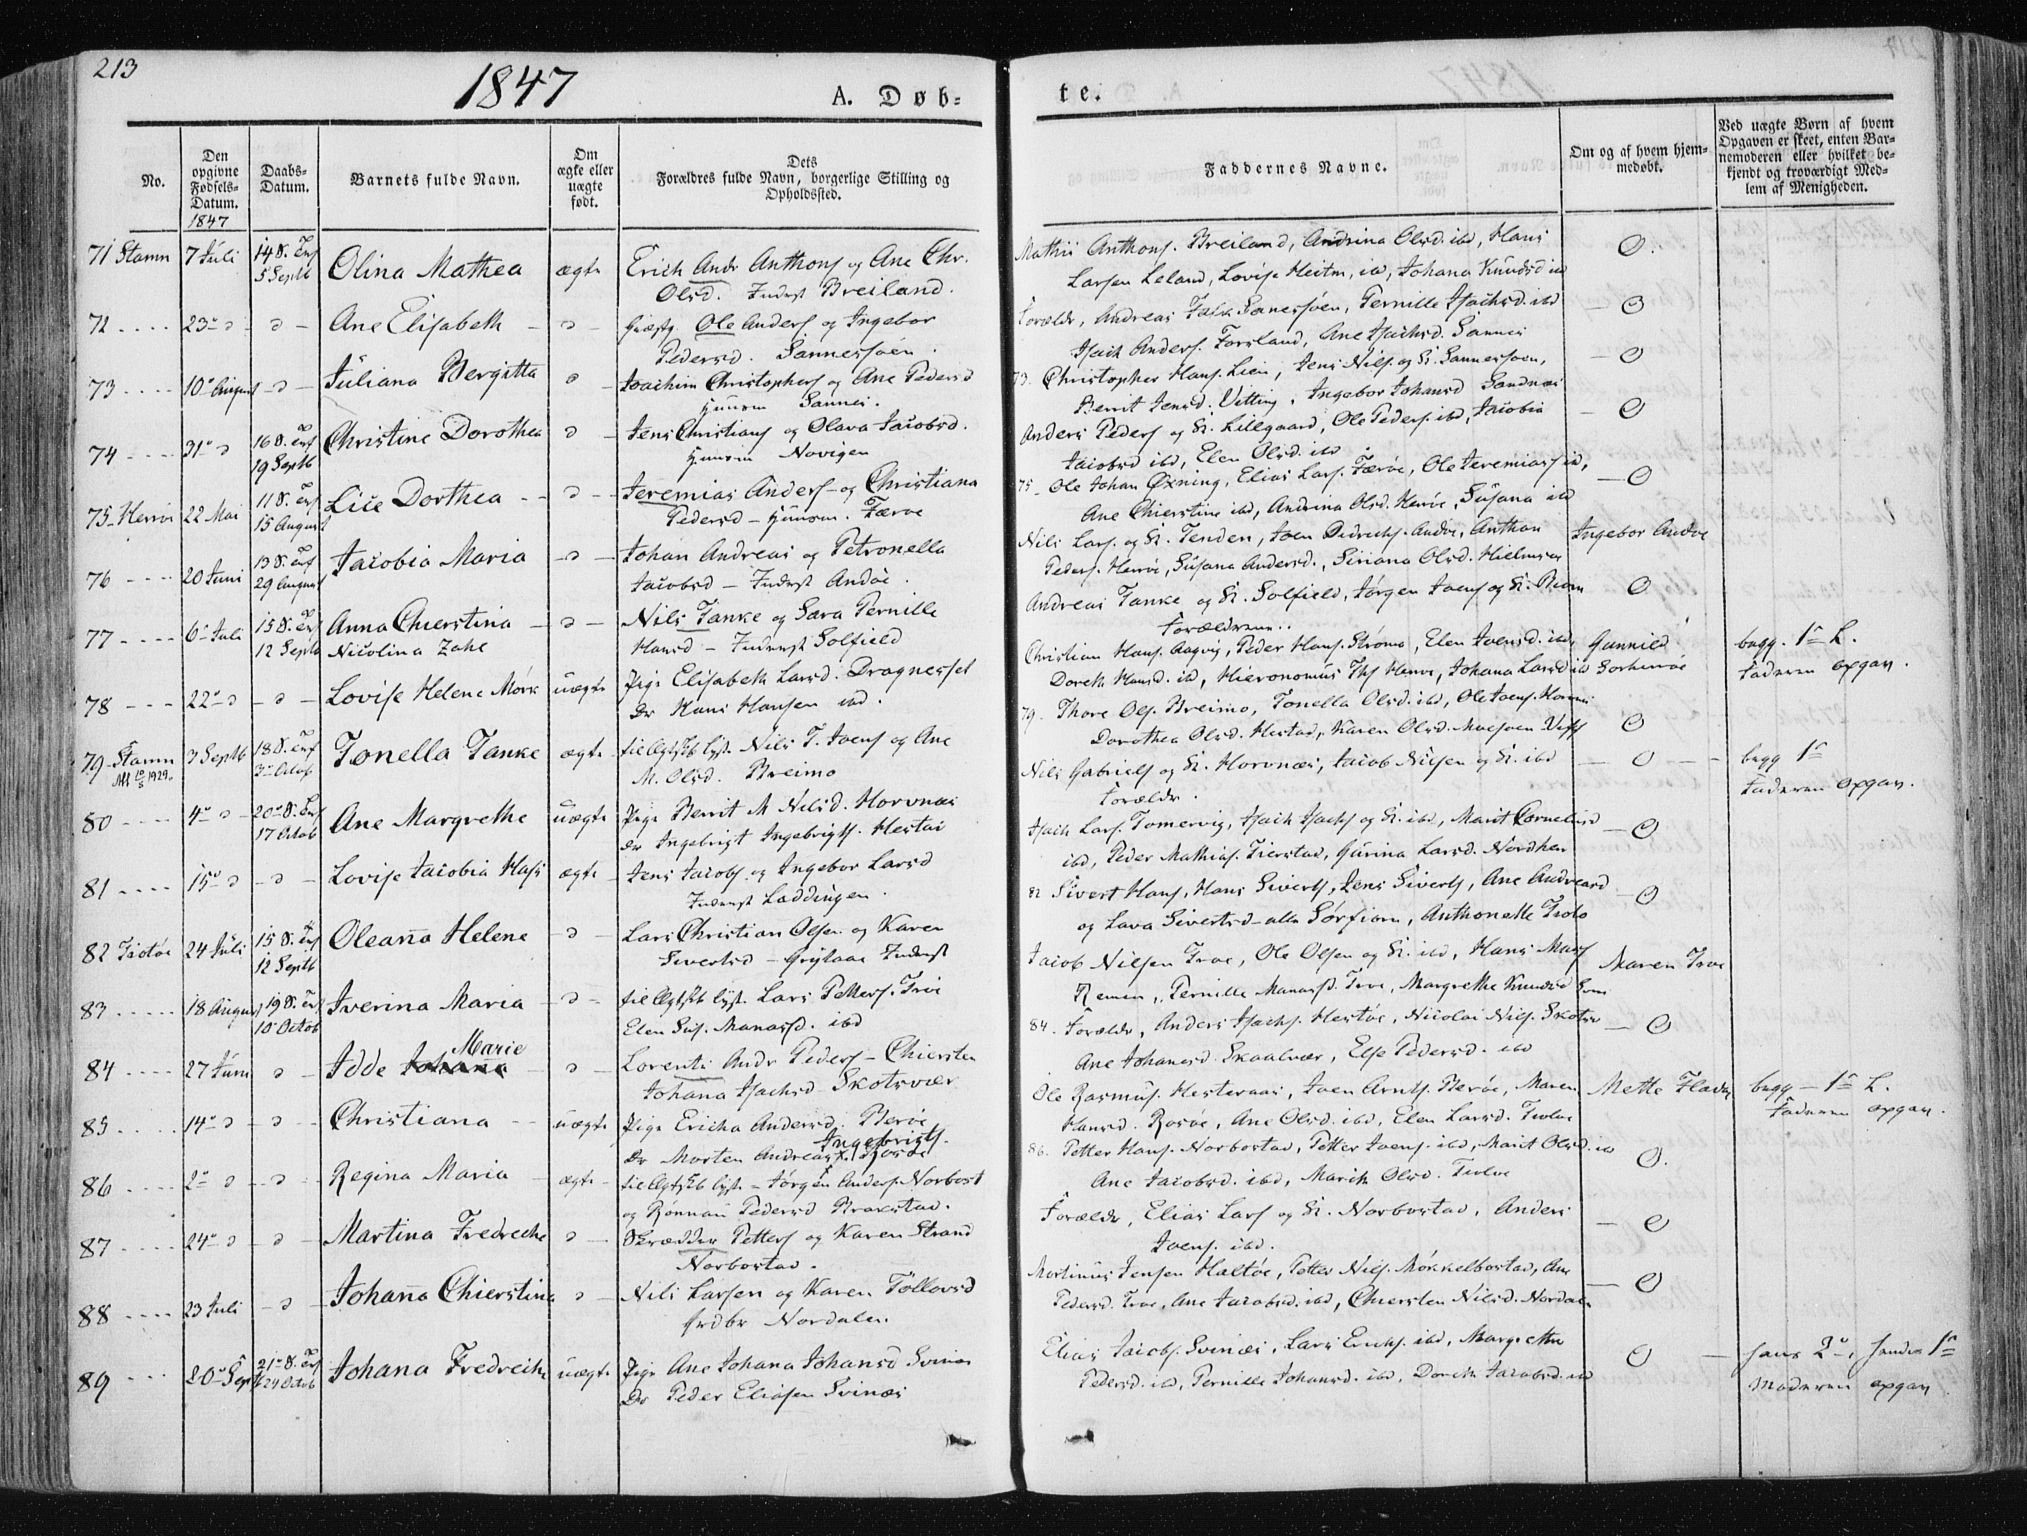 213
1847
A. Døb-
te.
No.
Den opgivne Fødsels-Datum.
1847
Daabs-Datum.
Barnets fulde Navn.
Om ægte eller uægte født.
Dets Forældres fulde Navn, borgerlige Stilling og Opholdssted.
Faddernes Navne.
Om og af hvem hjemmedøbt.
Ved uægte Børn af hvem Opgaven er skeet, enten Barnemoderen eller hvilket bekjendt og troværdigt Medlem af Menigheden.
71 Stamn 7 Juli 14 S. Trf 5 Septb Olina Mathea ægte Erich Andr Anthons og Ane Chr.
Olsd. Inderst Breiland.
Mathis Anthons. Breiland, Andrina Olsd. ibd, Hans
Larsen Leland, Lovise Heitm. ibd, Johana Knudsd ibd
72 23 Ane Elisabeth Ole Anders og Ingebor
Pedersd. Sannessøen.
Forældr, Andreas Falch Sannessøen, Pernille Isachsd. ibd
Isach Anders. Forsland, Ane Isachsd. Sannes
73 10 August Juliana Bergitta Joachim Christophers og Ane Pedersd
Huusm Sannes.
73. Christopher Hans. Lien, Jens Nils. og K. Sannessøen,
Berrit Jensd. Vitting, Ingebor Johansd Sandnæs
74 31 16 S. Trf 19 Septb Christine Dorothea Jens Christians og Olava Jacobsd.
Huusm Novigen
Anders Peders og K. Lillegaard, Ole Peders. ibd, Jacobia
Jacobsd ibd, Elen Olsd. ibd
75 Herrøe 22 Mai 11 S. Trf 15 August Lise Dorthea Jeremias Anders og Christiana
Pedersd - Huusm. Færøe
75 Ole Johan Øxning, Elias Lars. Færøe, Ole Jeremiass ibd,
Ane Chierstine ibd, Andrina Olsd. Herrøe, Susana ibd
76 20 Juni 13 S. Trf 29 August Jacobia Maria Johan Andreas og Petronella
Jacobsd - Inderst Andøe.
Nils Lars. og K. Tenden, Joen Didrichs. Andøe, Anthon
Peders. Herrøe, Susana Andersd., Siriana Olsd. Hielmsøe
Ingebor Andøe
77 6 Juli 15 S. Trf 12 Septb Anna Chierstina
Nicolina Zahl
Nils Tanke og Sara Pernille
Hansd - Inderst Solfield
Andreas Tanke og K. Solfield, Jørgen Joens og K. Breim
Forældrene.
78 22 Lovise Helene Mørk uægte Pige Elisabeth Larsd. Dragnesset
Dr Hans Hansen ibd.
Christian Hans. Aagvig, Peder Hans. Strømø, Elen Joensd. ibd,
Doreth Hansd. ibd, Hieronomus Herrøe, Johana Larsd ibd
Gunnild Sorherrøe
begg. 1ste L.
Faderen opgav.
79 Stamn 3 Septb 18 S. Trf 3 Octob Tonella Tanke ægte til Ægtsk lyst. Nils T. Joens og Ane
M. Olsd. Breimo
79. Thore Ols. Breimo, Tonella Olsd. ibd, Ole Joens.
Dorothea Olsd. Hestad, Karen Olsd.
80 4 20 S. Trf 17 Octob Ane Margrethe uægte Pige Berrit M Nilsd. Horvnæs
Dr Ingebrigt Ingebrigts. Hestad
Nils Gabriels og K. Horvnæs, Jacob Nilsen og K. ibd
Forældr.
begg 1ste
Faderen opgav.
81 15 Lovise Jacobia Hass ægte Jens Jacobs. og Ingebor Larsd
Inderst Laddingen.
Isach Lars. Tomervig, Isach Isachs og K. ibd, Marit Corneliusd
ibd, Peder Mathias. Tierstad, Gurina Larsd. Nordher
82 Tiøtøe 24 Juli 15 S. Trf 12 Septb Oleana Helene Lars Christian Olsen og Karen
Sivertsd - Grytaae Inderst
82 Sivert Hans, Hans Siverts, Jens Siverts, Ane Andreasd
og Lava Sivertsd - alle Sørfiorn, Anthonette Tiolø
83 18 August 19 S. Trf 10 Octob Iverina Maria til Ægtsk lyst. Lars Petters. Troe
Elen Sus. Manassd. ibd
Jacob Nilsen Troe, Ole Olsen og K. ibd, Hans Mass
Remen, Pernille Manassd. Troe, Margrethe Knudsd
Maren Troe
84 27 Juni Idde Johana Marie Lorents Andr Peders - Chiersten
Johana Isachsd Skotsvær
84. Forældr, Anders Isachs. Hestøe, Nicolai Nils. Skotsv
Ane Johansd. Skaalvær, Else Pedersd. ibd
85 14 Christiana uægte Pige Ericha Andersd. Berøe
Dr Morten Andreas Ingebrigts. Rosøe
Ole Rasmus. Hesteraas, Joen Arnts. Berøe, Maren
Hansd. Rosøe, Ane Olsd. ibd, Elen Larsd. Tioløe
Mette Fladøe
begg - 1ste L.
Faderen opgav.
86 2 Regina Maria ægte til Ægtsk lyst - Jørgen Anders. Norbost
og Ronnau Pedersd Brækstad.
86. Petter Hans. Norbostad, Petter Joens. ibd, Marit Olsd. ibd
Ane Jacobsd. ibd, Marith Olsd. Tioløe
87 24 Martina Fredreche Skrædder Petters og Karen Strand
Norbostad.
Forældr, Elias Lars og K. Norbostad, Anders
Joens. ibd.
88 23 Juli Johana Chierstina Nils Larsen og Karen Tollovsd
Grdbr Nordalen.
Mortinus Jensen Haltøe, Petter Nils. Møkkelbostad, Ane
Pedersd. Troe, Ane Jacobsd. ibd, Chiersten Nilsd. Nordalen
89 20 Sept 21 S. Trf 24 Octob Johana Fredreche uægte Pige Ane Johana Johansd Svinæs
Dr Peder Eliasen Svinæs
Elias Jacobs. Svinæs, Lars Erichs. ibd, Margrethe
Pedersd. ibd, Pernille Johansd. ibd, Doreth Jacobsd. ibd
hans 2den, hendes 1ste
Moderen opgav